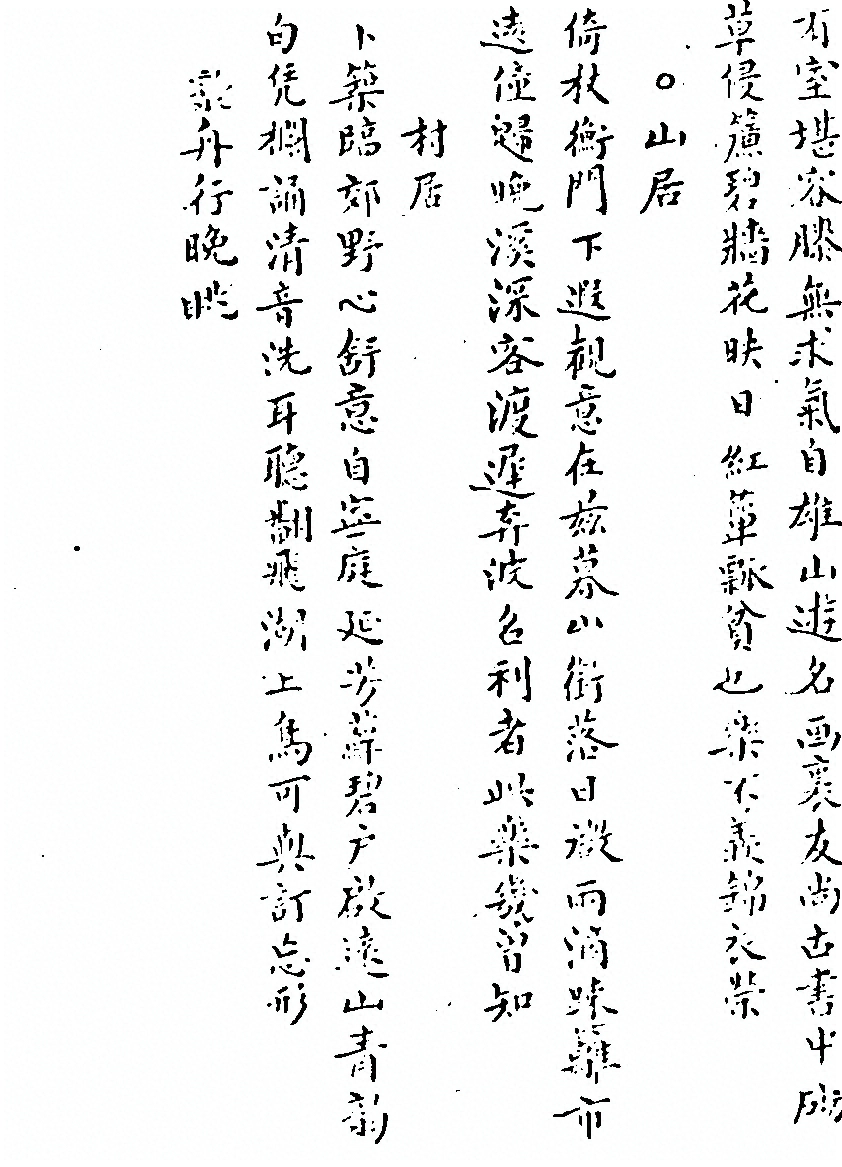 有室堪容膝無求氣自雄山遊名画裏友尚古書中砌
草侵簾碧牆花映日紅簞瓢貧也樂不羨錦衣榮
○山居
倚杖衡門下遐觀意在茲暮山銜落日微雨滴踈籬市
遠僮歸晚溪深客渡遲奔波名利者此樂幾曾知
村居
卜築臨郊野心舒意自寧庭延芳蘚碧户啟遠山青韵
句凭欄誦清音洗耳聽翻飛湖上鳥可與訂忘形
舟行晚眺